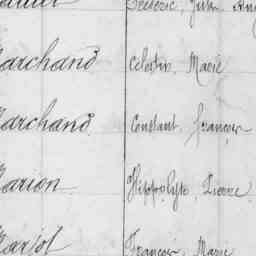 Frédéric, Jules
Marchand Célestin, Marie
Marchand Constant, François
Marion Hippolyte Pierre
François, Marie